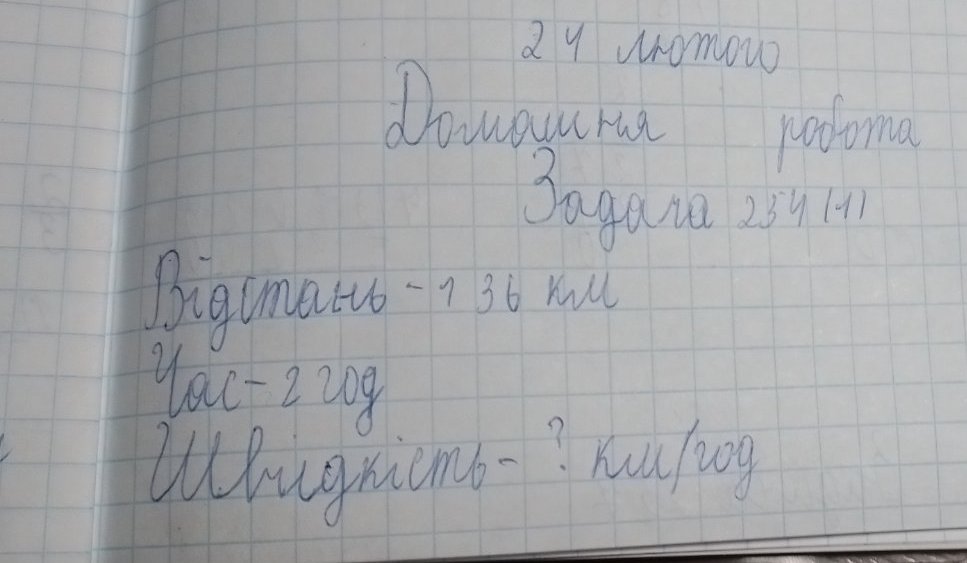 24 лютого
Домашня робота
Задача 254 (1)
Відстань - 136 км
Час - 2 год
Швидкість - ? км/год